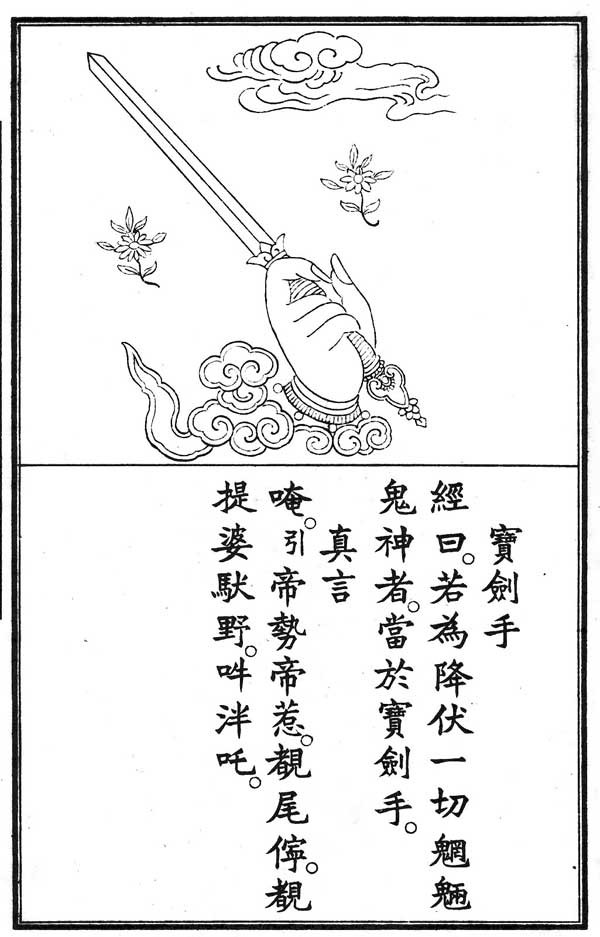 寶劍手
經曰。若為降伏一切魍魎
鬼神者。當於寶劍手。
真言
唵。引帝勢帝惹。覩尾儜。覩
提婆馱野。吽泮吒。